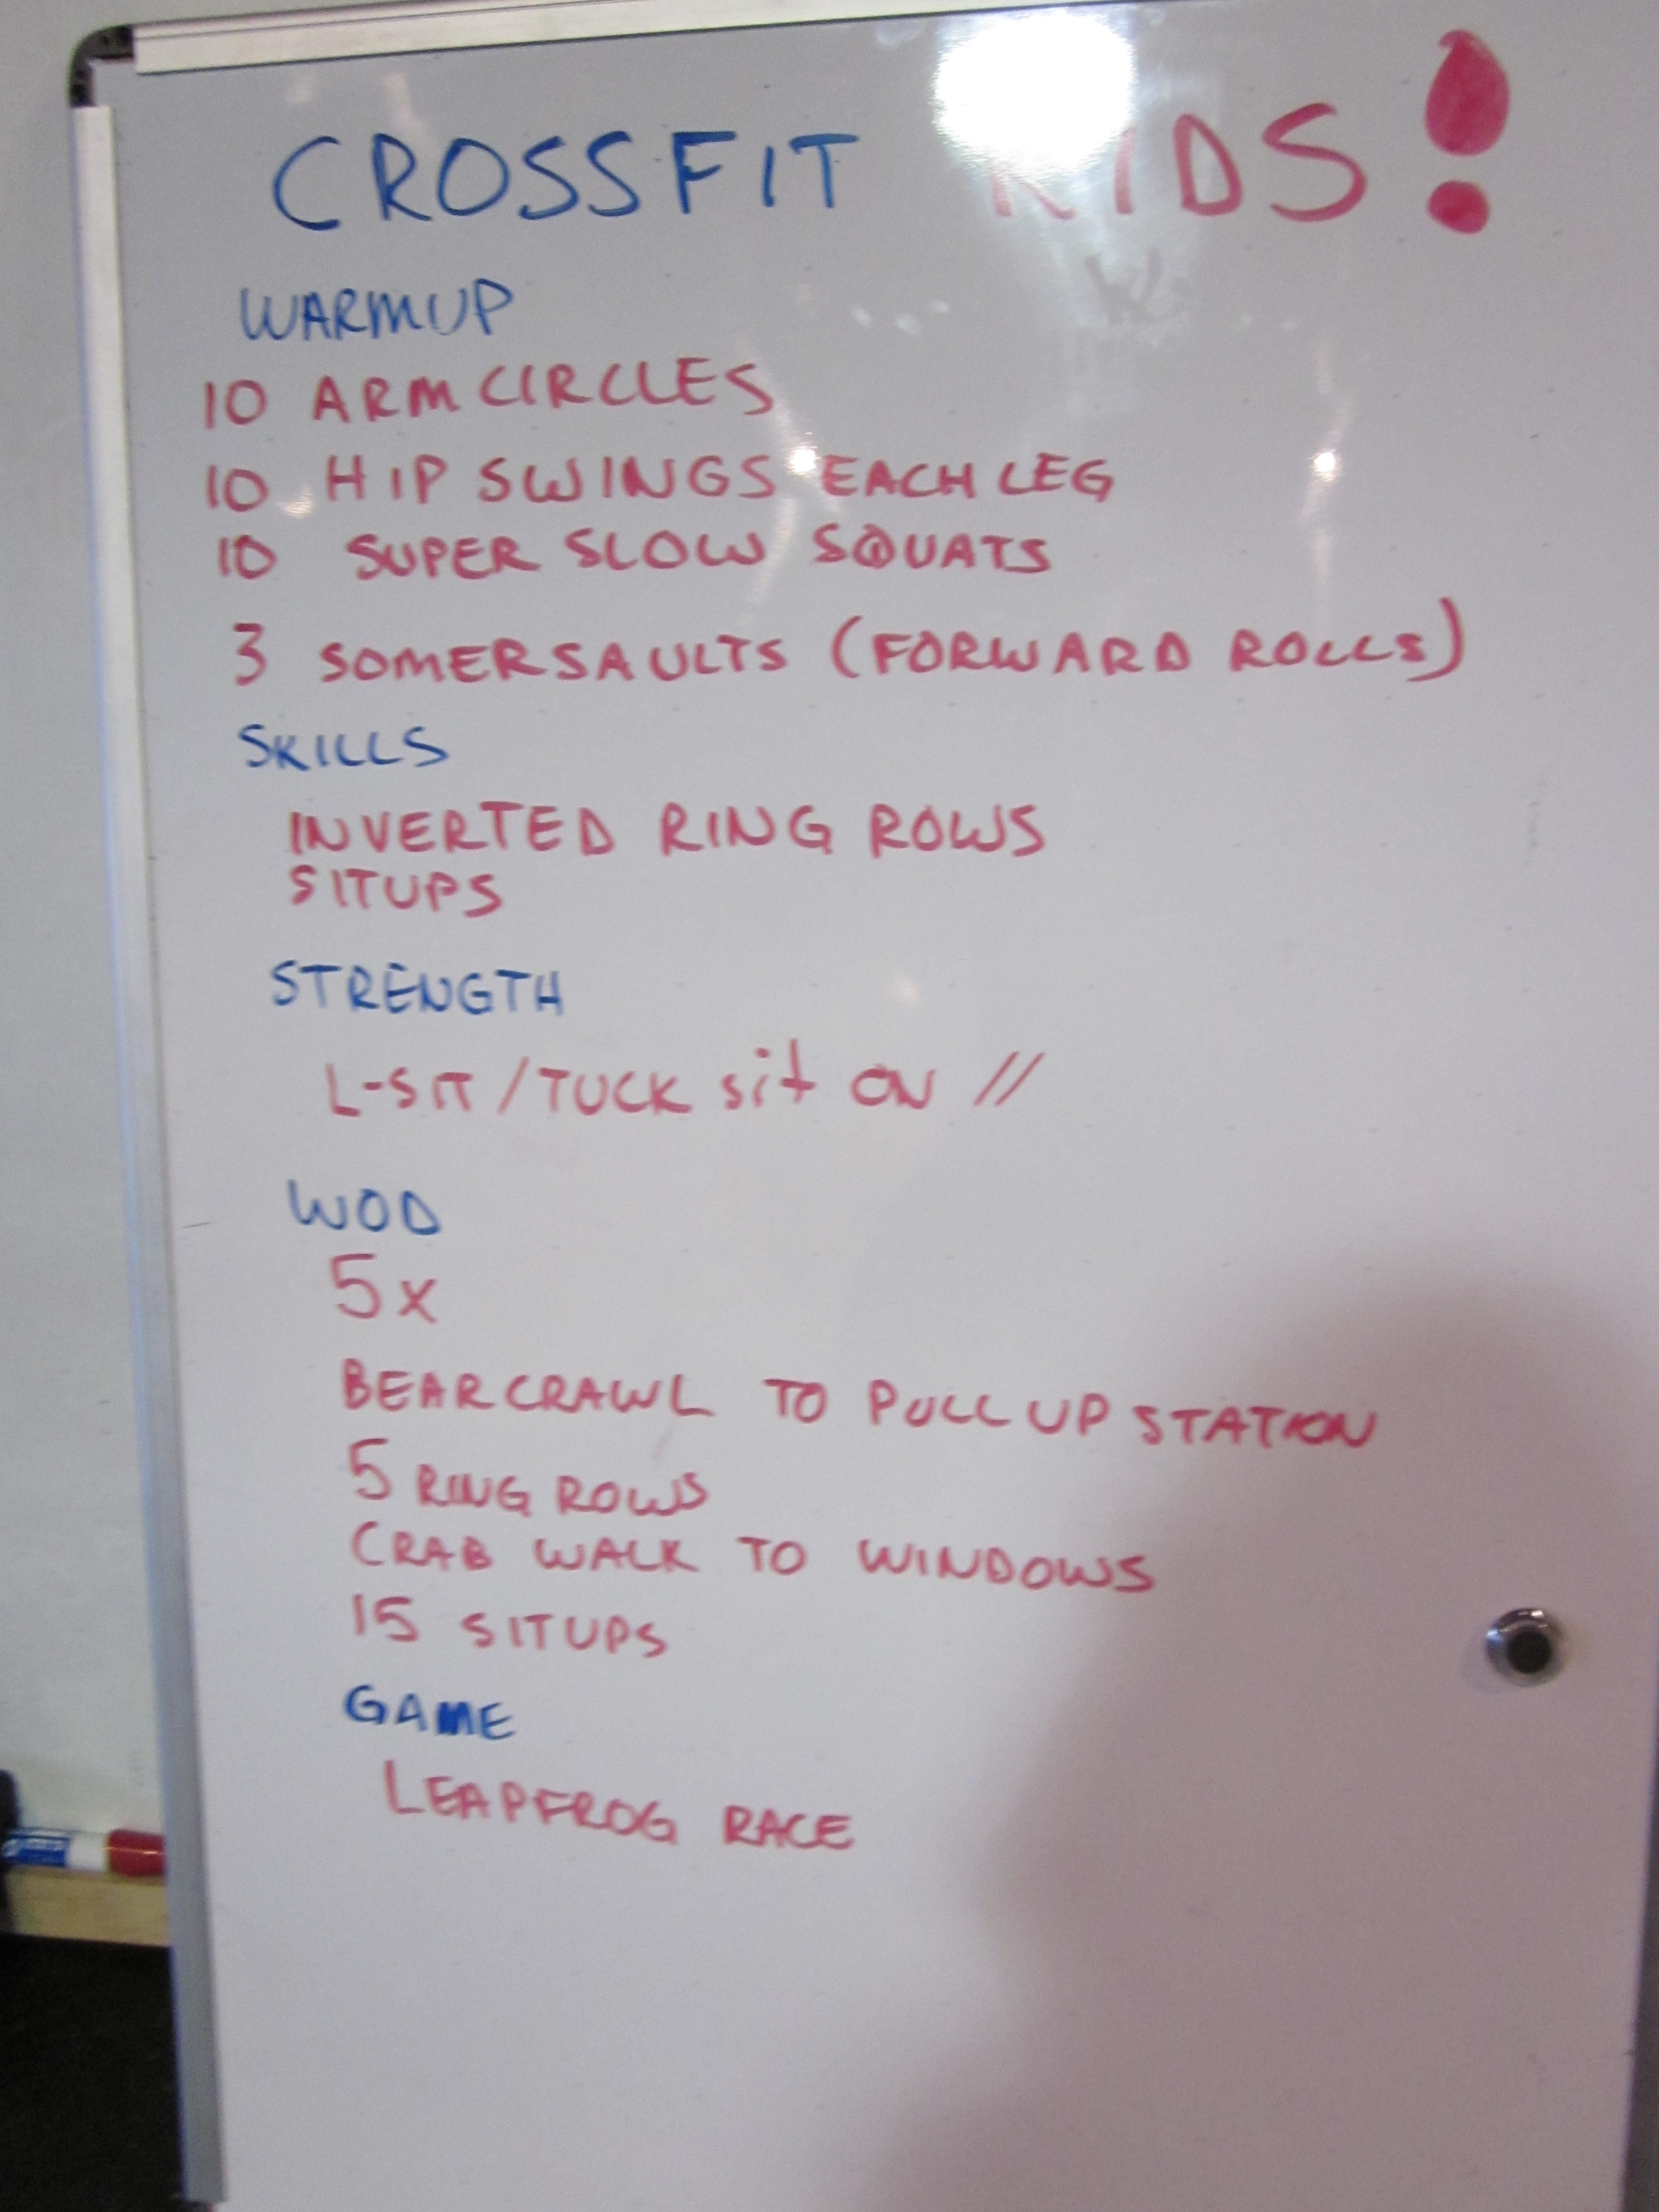 CROSSFIT KIDS!
WARMUP
10 ARM CIRCLES
10 HIP SWINGS EACH LEG
10 SUPER SLOW SQUATS
3 SOMERSAULTS (FORWARD ROLLS)
SKILLS
INVERTED RING ROWS
SITUPS
STRENGTH
L-SIT/TUCK sit ON //
WOD
5x
BEAR CRAWL TO PULL UP STATION
5 RING ROWS
CRAB WALK TO WINDOWS
15 SITUPS
GAME
LEAPFROG RACE